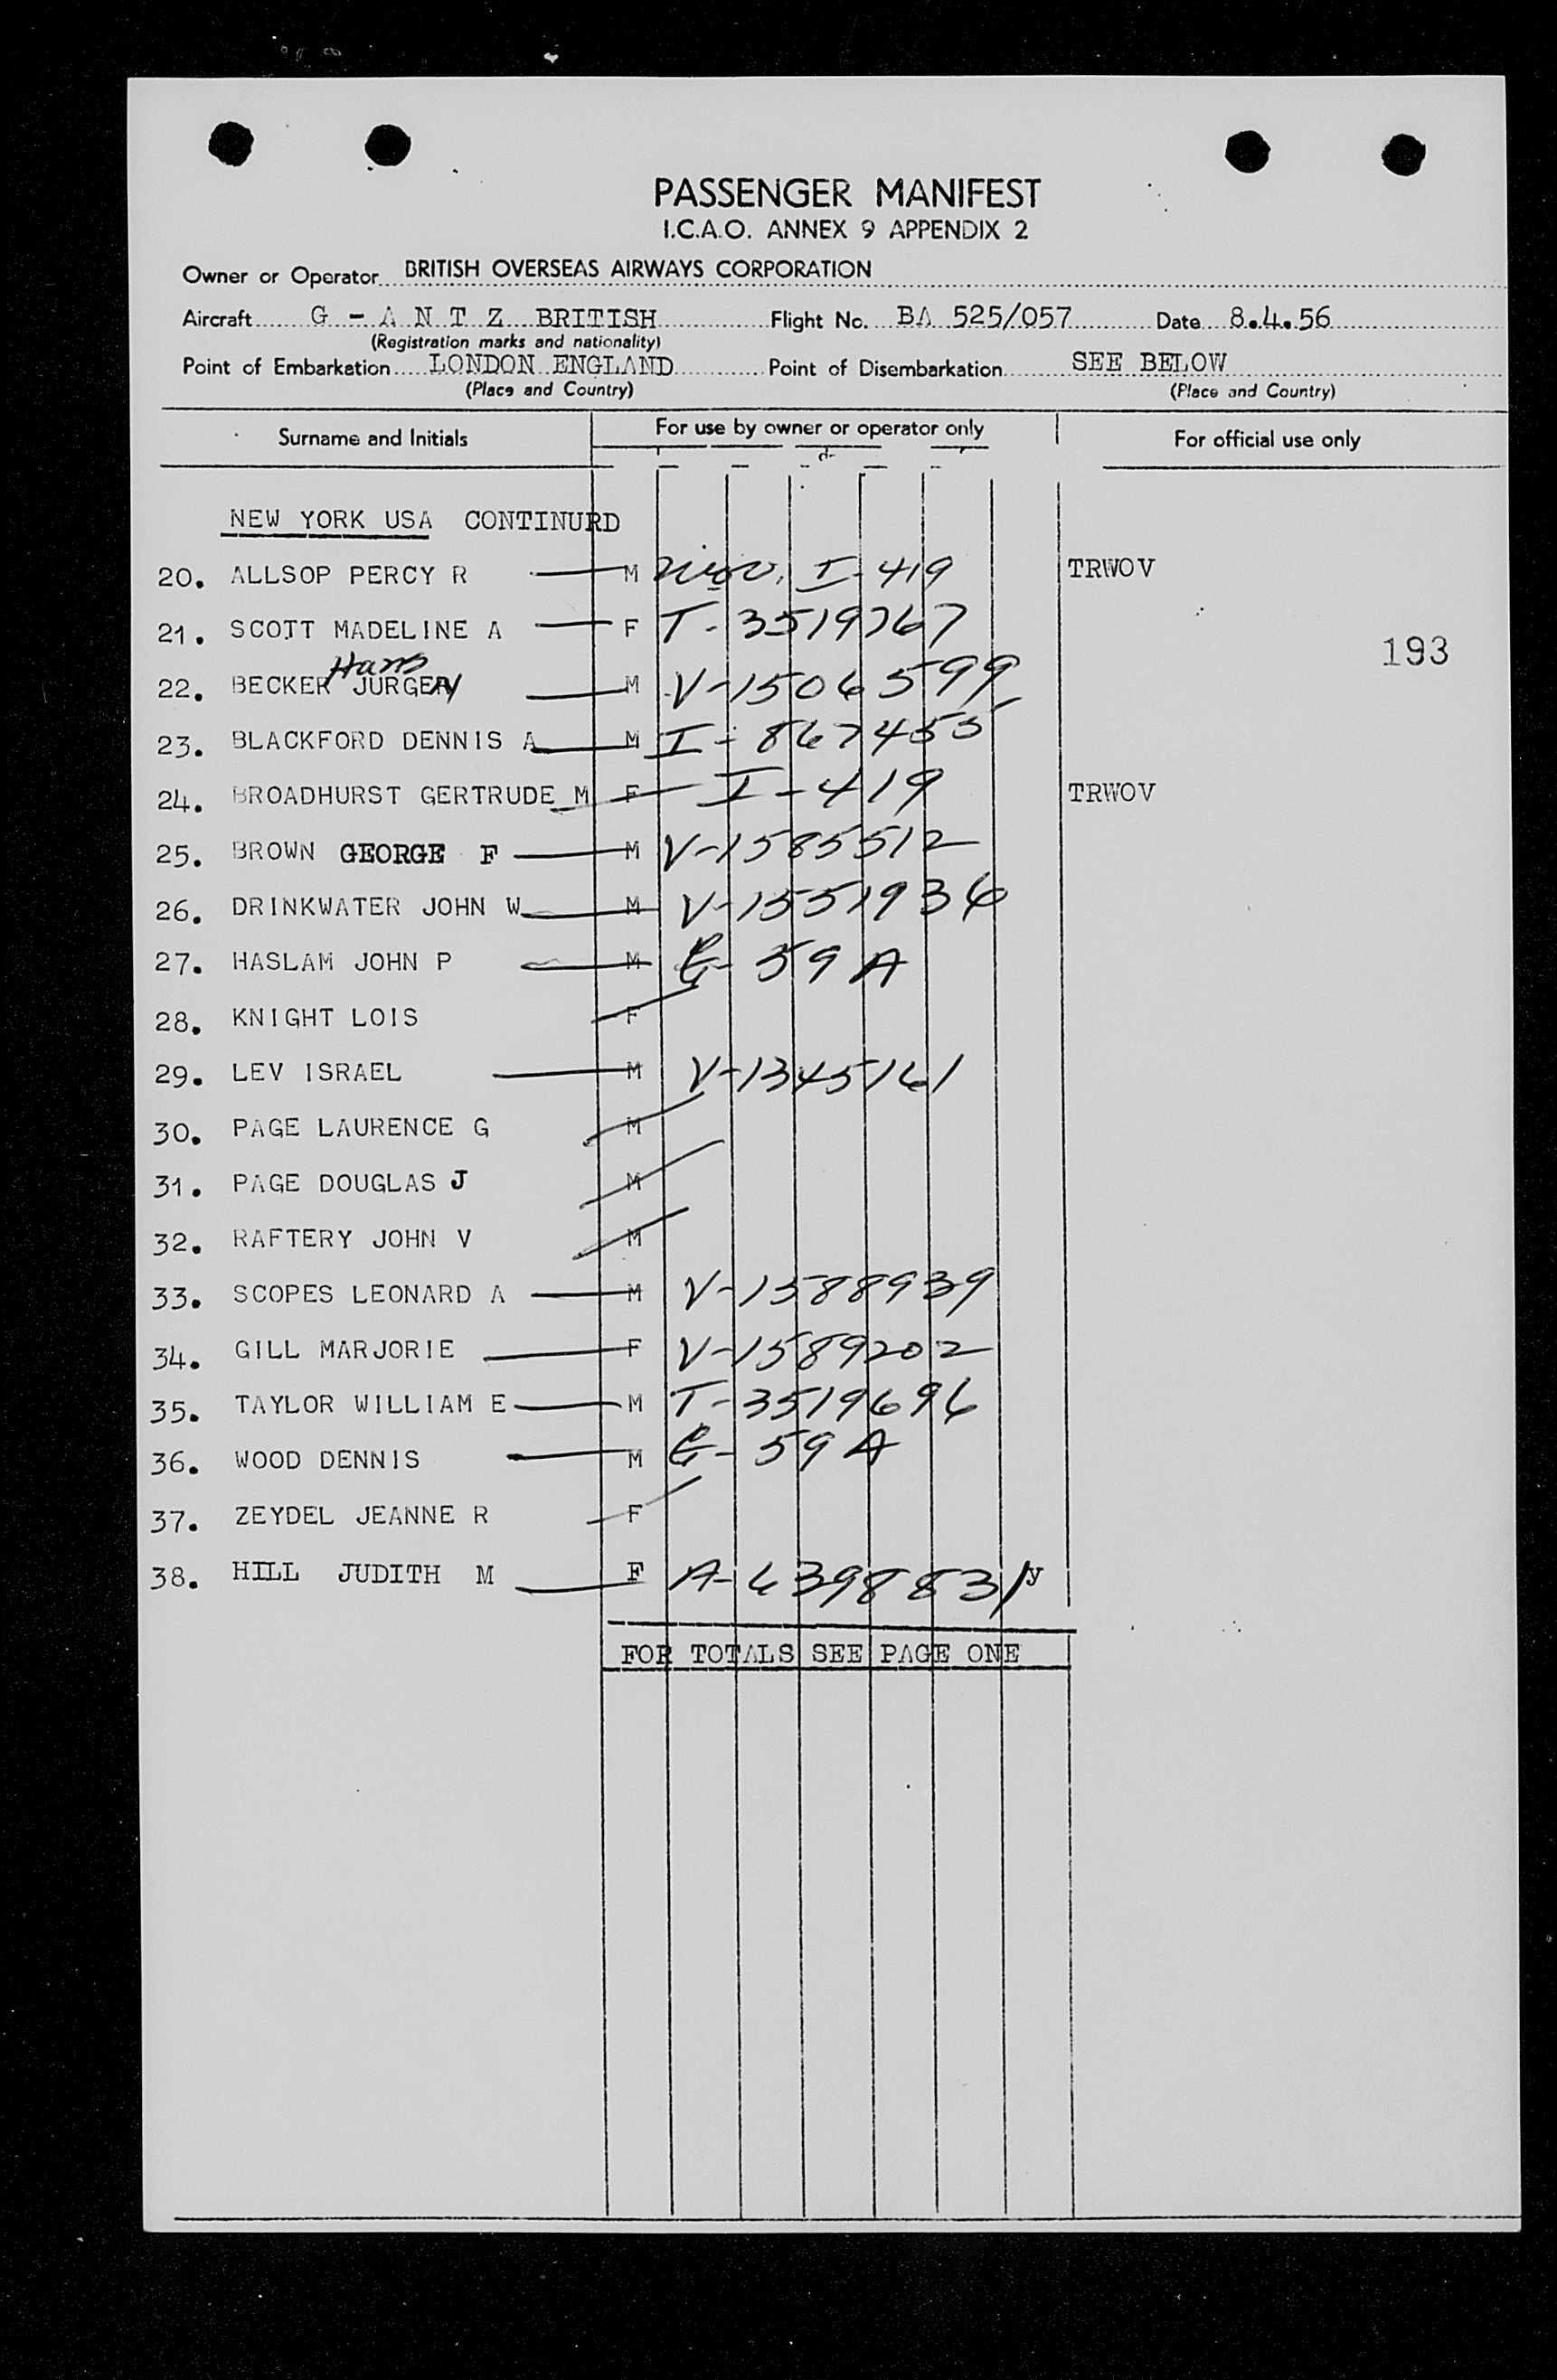 PASSENGER MANIFEST
I.C.A.O. ANNEX 9 APPENDIX 2
Owner or Operator BRITISH OVERSEAS AIRWAYS CORPORATION
Aircraft G - A N T Z BRITISH Flight No. BA 525/057 Date 8.4.56
(Registration marks and nationality)
Point of Embarkation LONDON ENGLAND Point of Disembarkation SEE BELOW
(Place and Country) (Place and Country)
Surname and Initials For use by owner or operator only For official use only
NEW YORK USA CONTINURD
20. ALLSOP PERCY R M I-419 TRWOV
21. SCOTT MADELINE A F T-3519767
193
Hans
22. BECKER JURGEN M V-1506599
23. BLACKFORD DENNIS A M I-867455
24. BROADHURST GERTRUDE M F I-419 TRWOV
25. BROWN GEORGE F M V-1585512
26. DRINKWATER JOHN W M V-1551936
27. HASLAM JOHN P M G-59A
28. KNIGHT LOIS F
29. LEV ISRAEL M V-1345161
30. PAGE LAURENCE G M
31. PAGE DOUGLAS J M
32. RAFTERY JOHN V M
33. SCOPES LEONARD A M V-1588939
34. GILL MARJORIE F V-1589202
35. TAYLOR WILLIAM E M T-3519696
36. WOOD DENNIS M G-59A
37. ZEYDEL JEANNE R F
38. HILL JUDITH M F A-6398831
FOR TOTALS SEE PAGE ONE